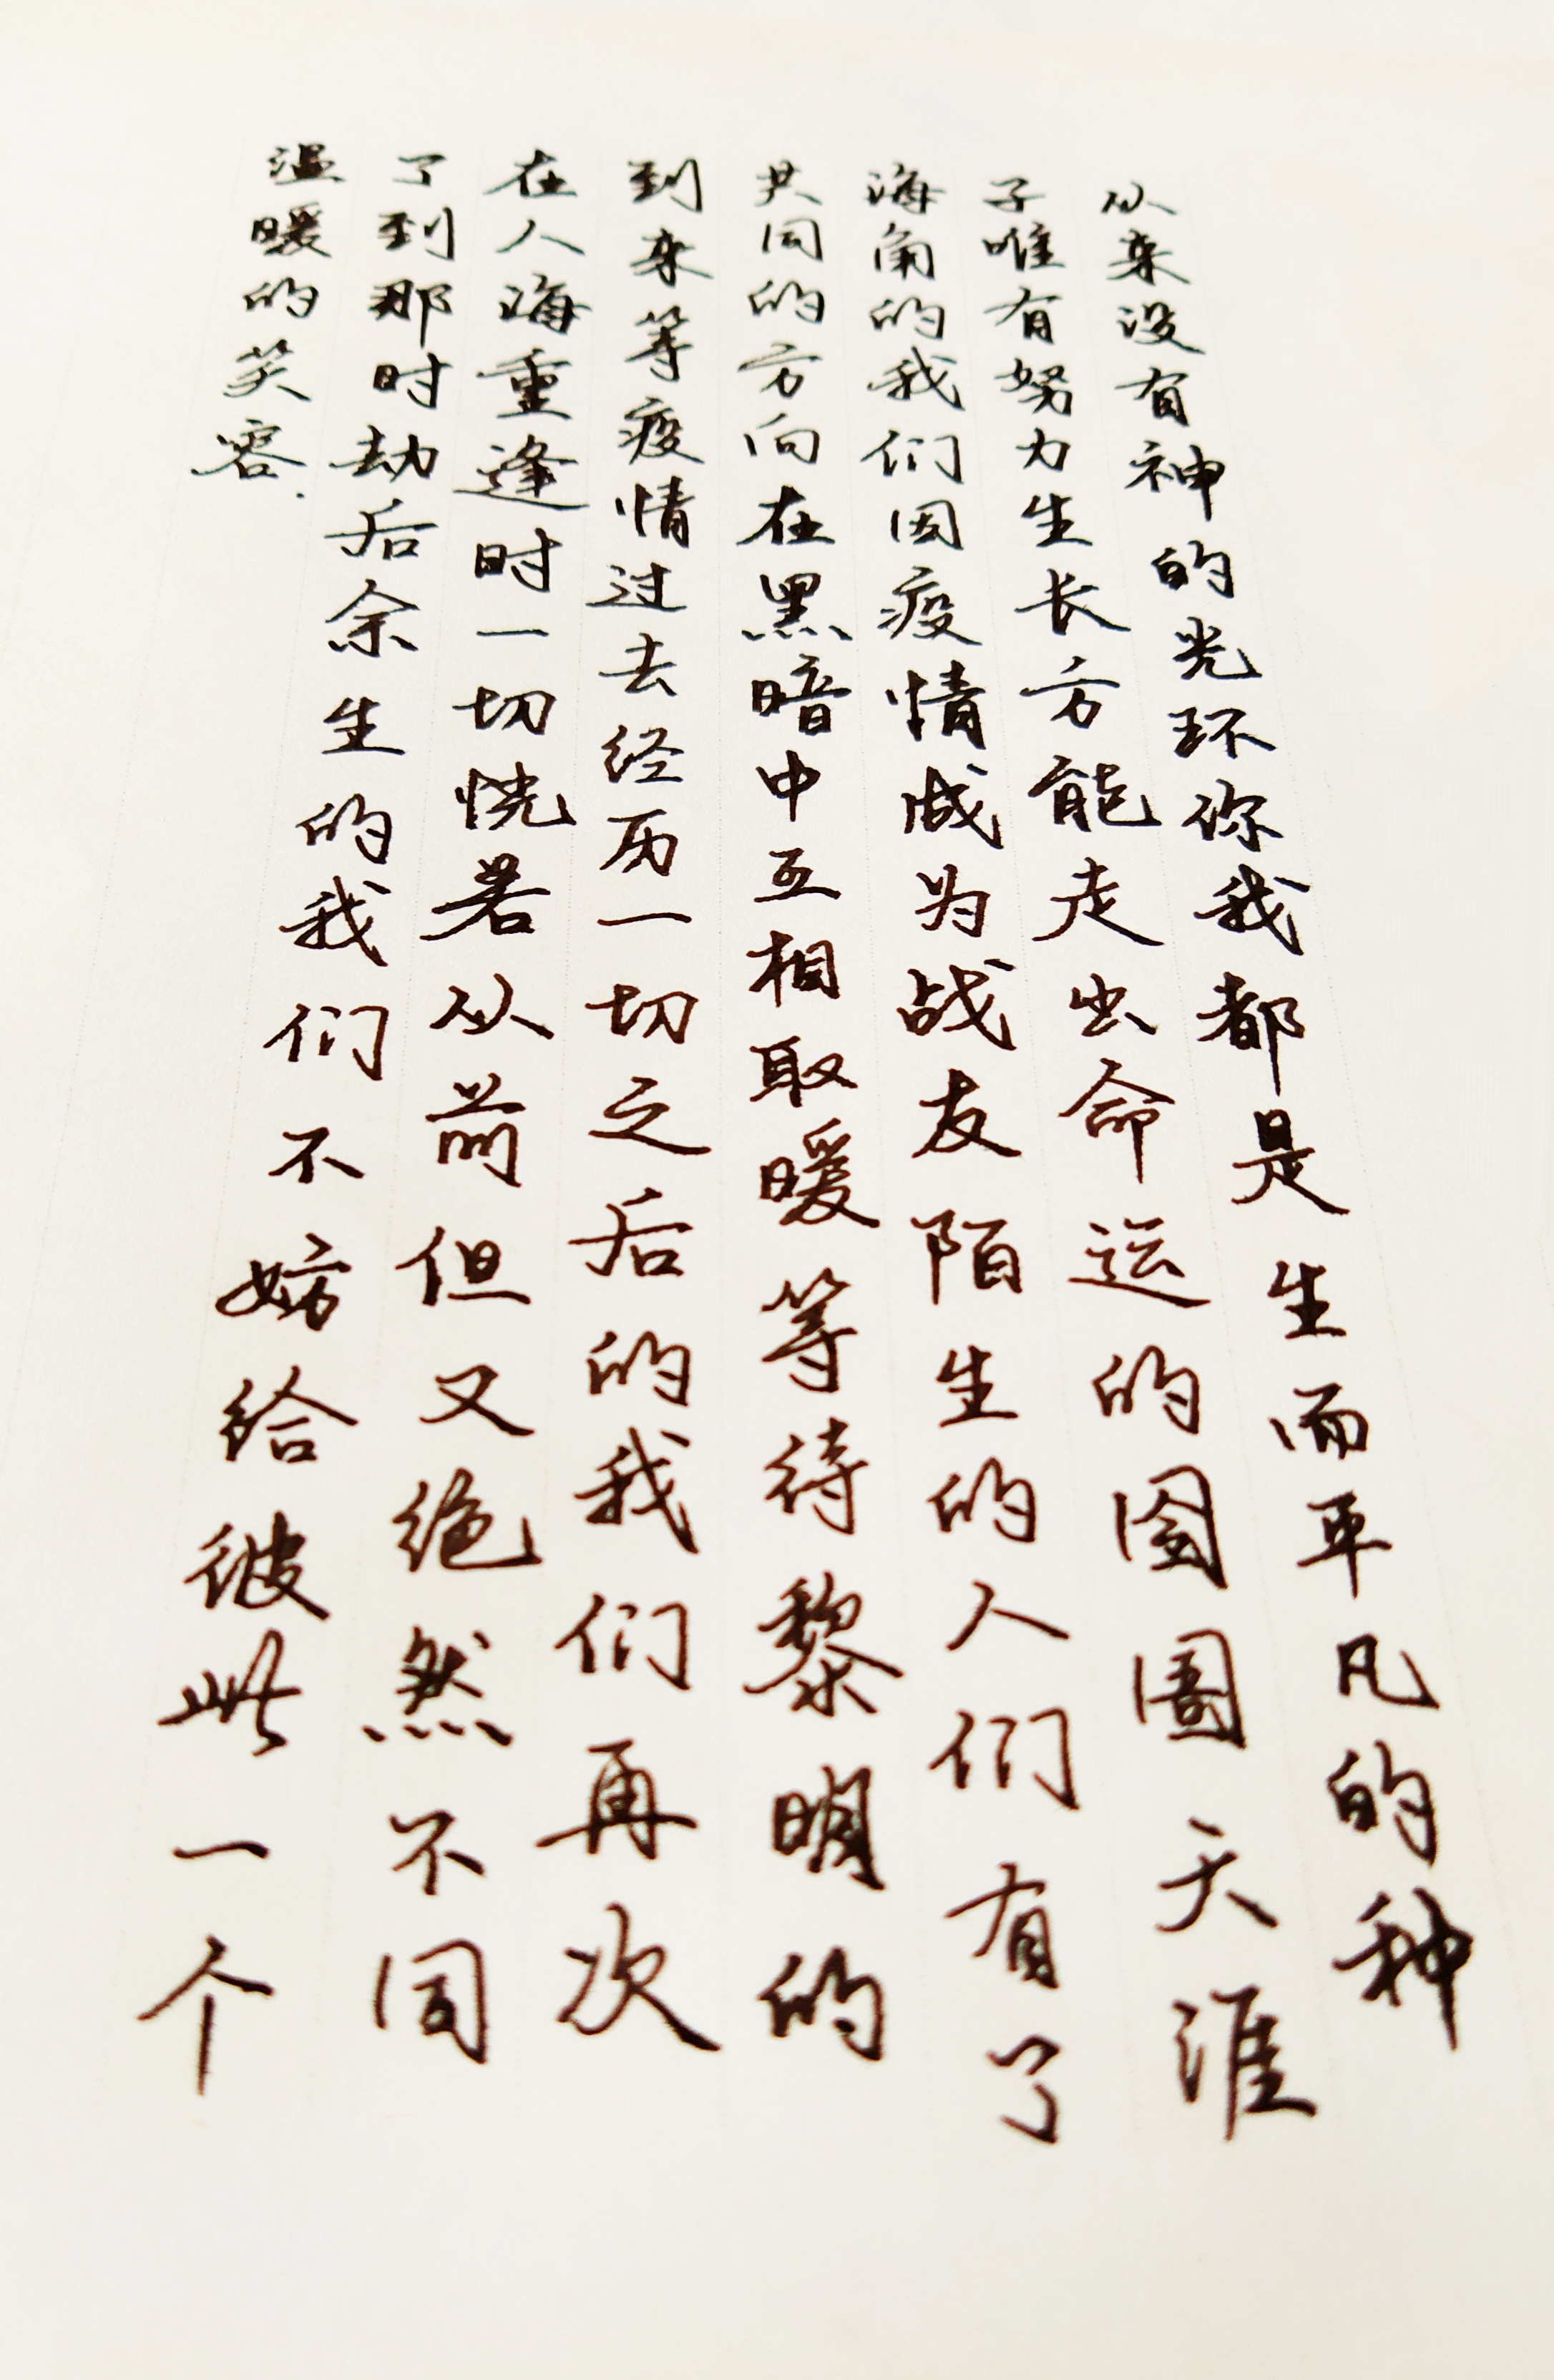 从来没有神的光环你我都是生而平凡的种
子唯有努力生长方能走出命运的囹圄天涯
海角的我们因疫情成为战友陌生的人们有了
共同的方向在黑暗中互相取暖等待黎明的
到来等疫情过去经历一切之后的我们再次
在人海重逢时一切恍若从前但又绝然不同
了到那时劫后余生的我们不妨给彼此一个
温暖的笑容.